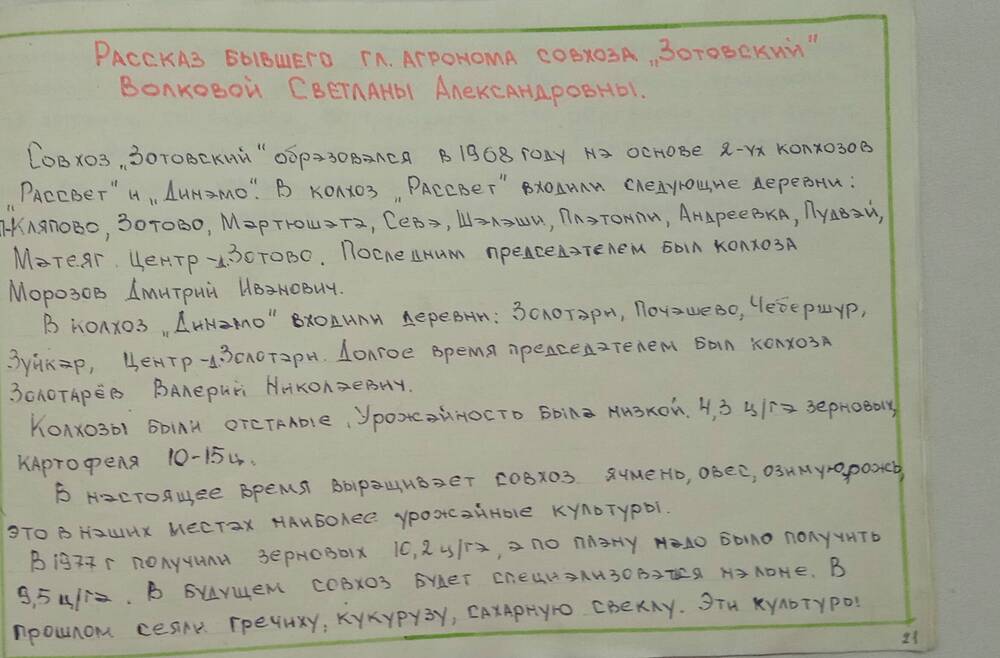 Рассказ бывшего гл. агронома совхоза „Зотовский"
Волковой Светланы Александровны.
Совхоз „Зотовский" образовался в 1968 году на основе 2-ух колхозов
„Рассвет" и „Динамо". В колхоз „Рассвет" входили следующие деревни:
П-Кляпово, Зотово, Мартюшата, Сева, Шалаши, Платонпи, Андреевка, Пудвай,
Матеяг. Центр-д.Зотово. Последним председателем был колхоза
Морозов Дмитрий Иванович.
В колхоз „Динамо" входили деревни: Золотари, Почашево, Чебершур,
Зуйкар, Центр-д.Золотари. Долгое время председателем был колхоза
Золотарёв Валерий Николаевич.
Колхозы были отсталые. Урожайность была низкой. 4,3 ц/га зерновых,
картофеля 10-15ц.
В настоящее время выращивает совхоз ячмень, овес, озимую рожь,
это в наших местах наиболее урожайные культуры.
В 1977 г получили зерновых 10,2 ц/га, а по плану надо было получить
9,5 ц/га. В будущем совхоз будет специализоватся на льне. В
прошлом сеяли гречиху, кукурузу, сахарную свеклу. Эти культуры
21